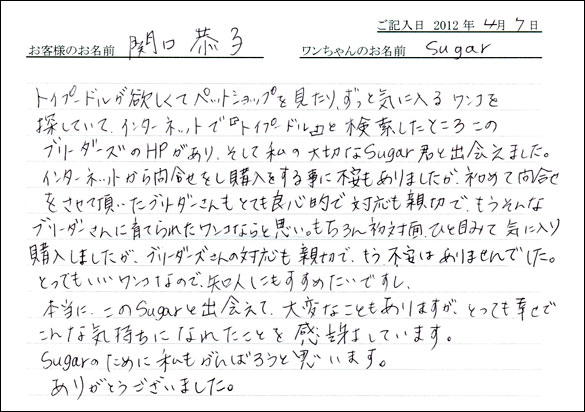 ご記入日 2012年 4月 7日
お客様のお名前 関口 恭子 ワンちゃんのお名前 Sugar
トイプードルが欲しくてペットショップを見たり、ずっと気に入るワンコを
探していて、インターネットで『トイプードル』と検索したところこの
ブリーダーズのHPがあり、そして私の大切なSugar君と出会えました。
インターネットから問合せをし購入をする事に不安もありましたが、初めて問合せ
をさせて頂いたブリーダーさんもとても良心的で対応も親切で、もうそんな
ブリーダーさんに育てられたワンコならと思い。もちろん初対面、ひと目みて気に入り
購入しましたが、ブリーダーズさんの対応も親切で、もう不安はありませんでした。
とってもいいワンコなので、知人にもすすめたいですし、
本当に、このSugarと出会えて、大変なこともありますが、とっても幸せで
こんな気持ちになれたことを感謝しています。
Sugarのために私もがんばろうと思います。
ありがとうございました。